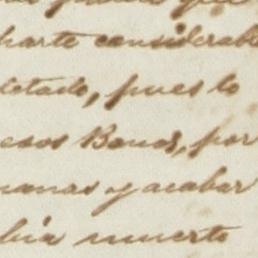 parte considerab
tetado, pues lo
esos Bonos, por
manas y acabar
bia muerto